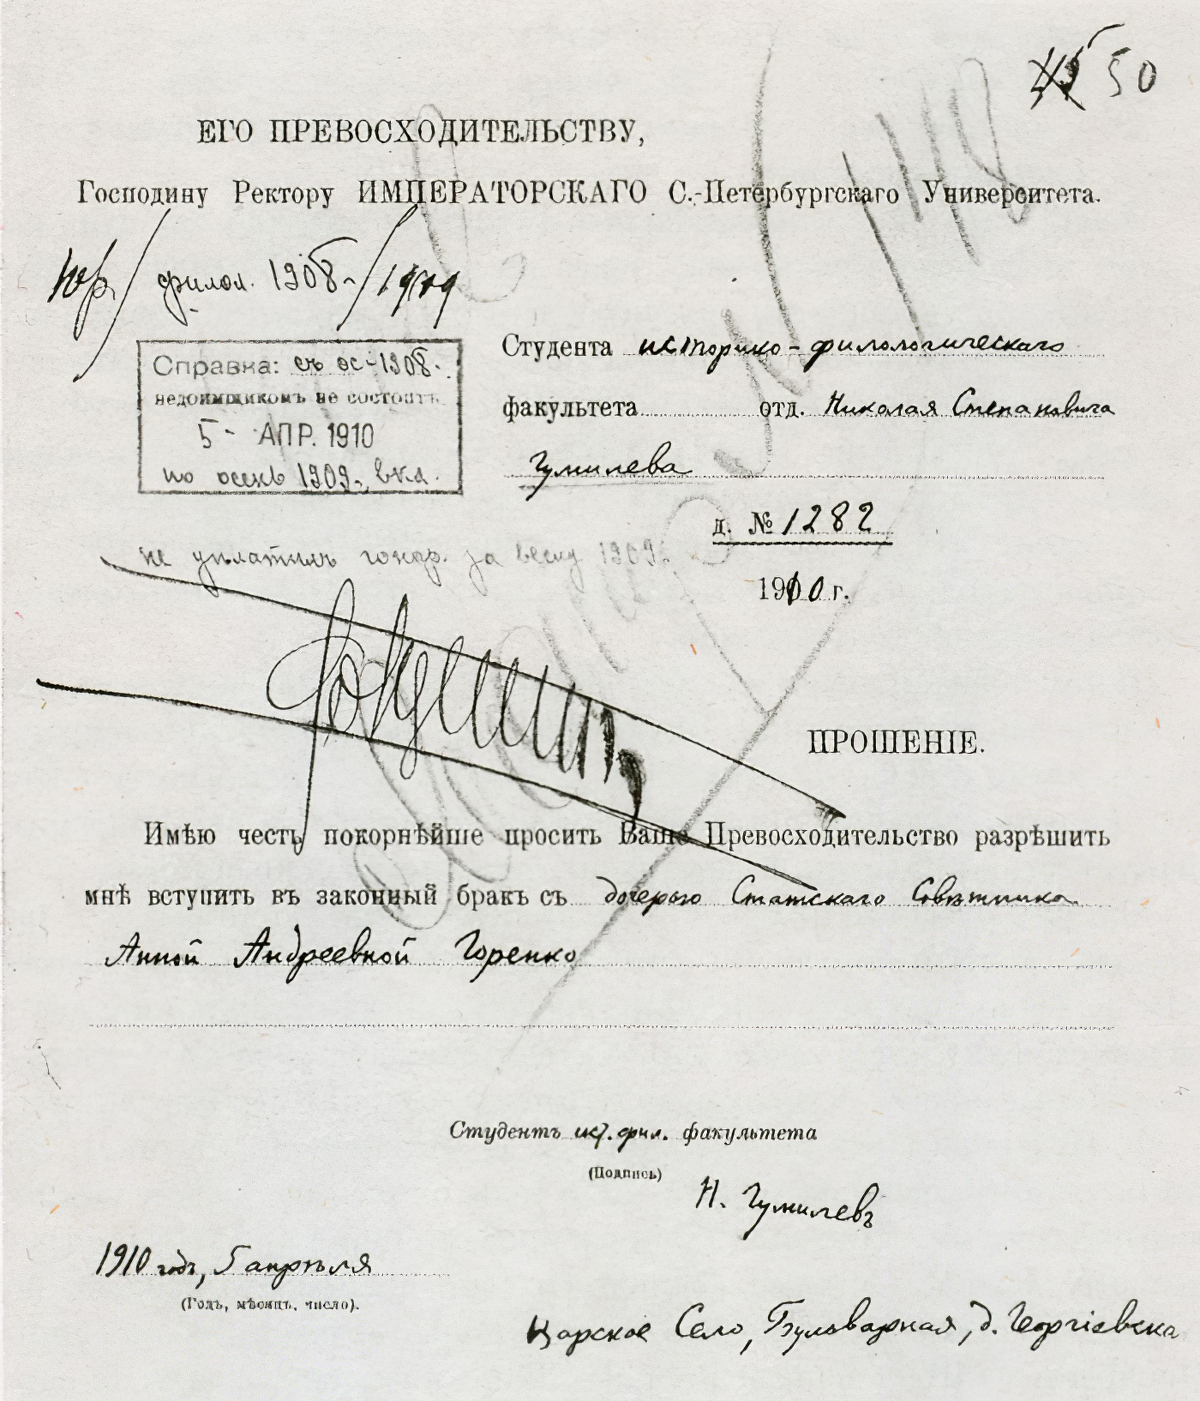 50
ЕГО ПРЕВОСХОДИТЕЛЬСТВУ,
Господину Ректору ИМПЕРАТОРСКАГО С.-Петербургскаго Университета.
Юр/ филол. 1908 - / 1909
Справка: съ ос-1908.
недоимщикомъ не состоитъ
5 - АПР. 1910
по осень 1909, вкл.
Студента историко-филологическаго
факультета отд. Николая Степановича
Гумилева
д. № 1282
не уплатилъ гонор. за весну 1909 г.
1910 г.
ПРОШЕНІЕ.
Имѣю честь покорнѣйше просить Ваше Превосходительство разрѣшить
мнѣ вступить въ законный бракъ съ дочерью Статскаго Совѣтника
Анной Андреевной Горенко
Студентъ ист. фил. факультета
(Подпись)
Н. Гумилевъ
1910 годъ, 5 апрѣля
(Годъ, мѣсяцъ, число).
Царское Село, Бульварная, д. Георгіевска